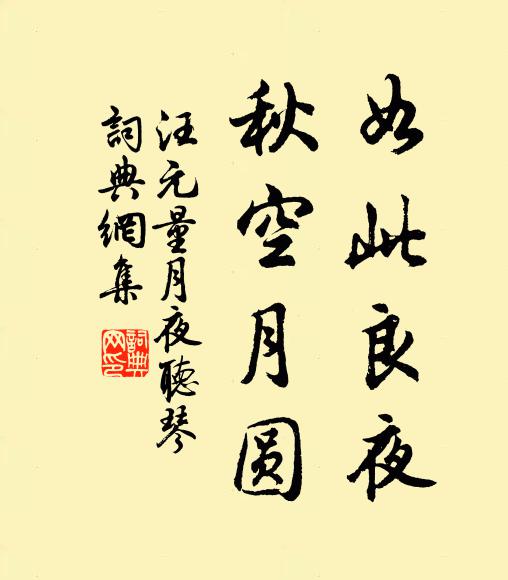 如此良夜
秋空月圆
汪元量月夜聽琴
詞典網集
詞典网印